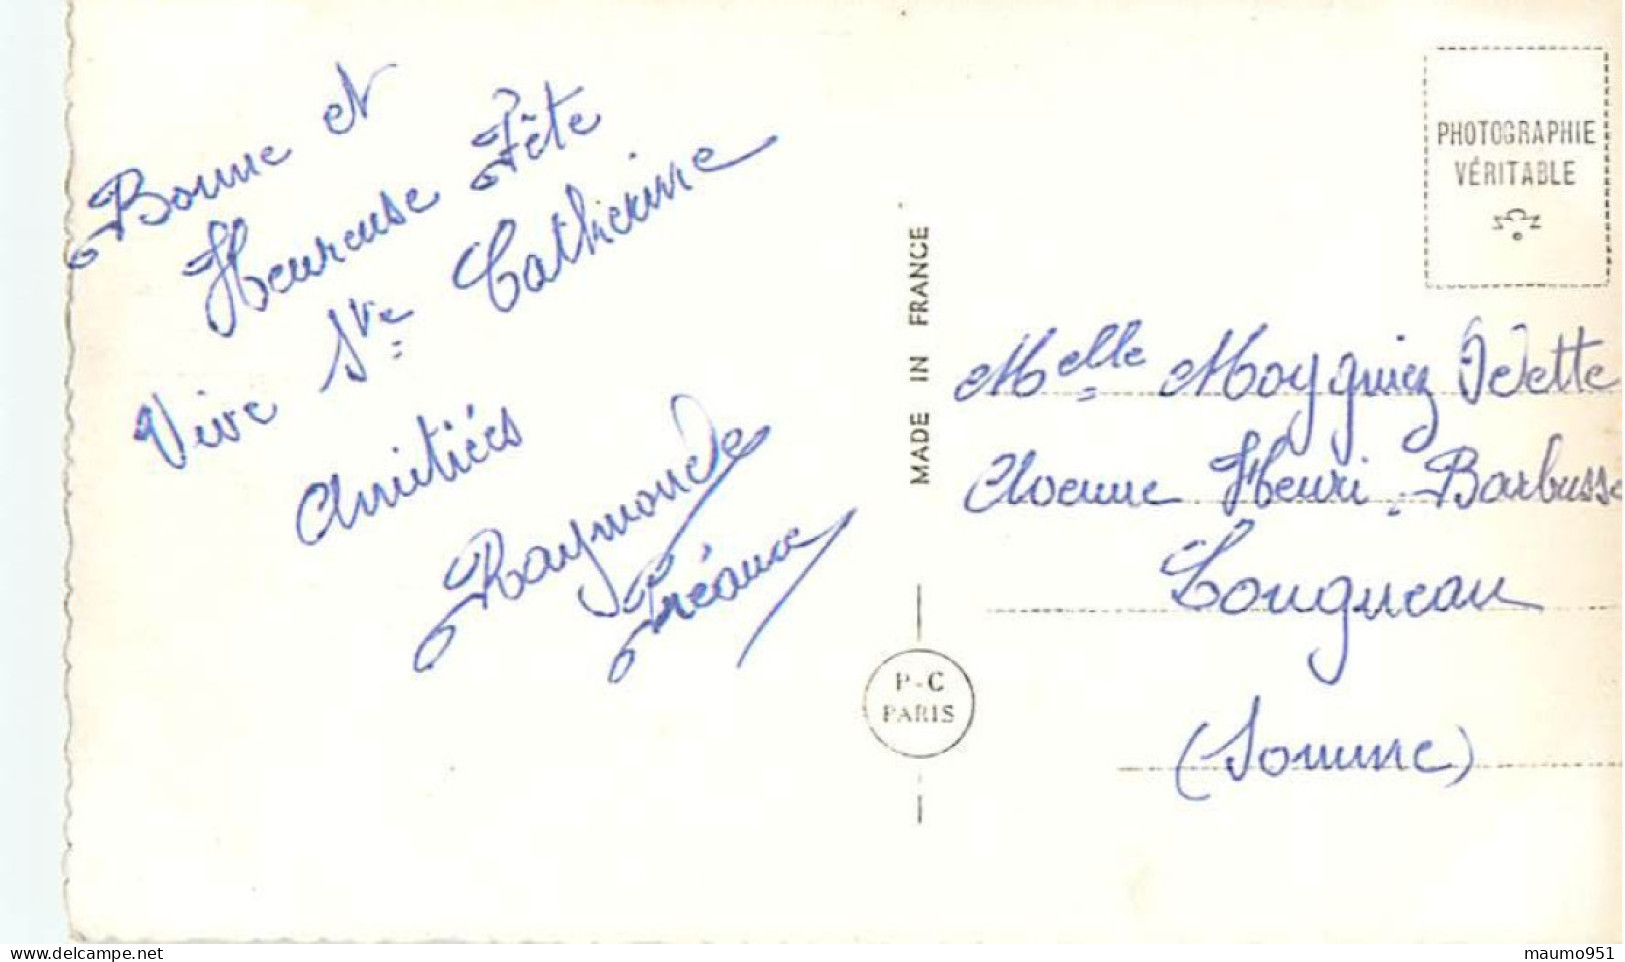 Bonne et
Heureuse Fête
Vive Ste Catherine
Amitiés
Raymonde
Préaux
MADE IN FRANCE
P-C
PARIS
PHOTOGRAPHIE
VÉRITABLE
Melle Moyguiez
Avenue Henri-Barbusse
Longueau
(Somme)
maumo951